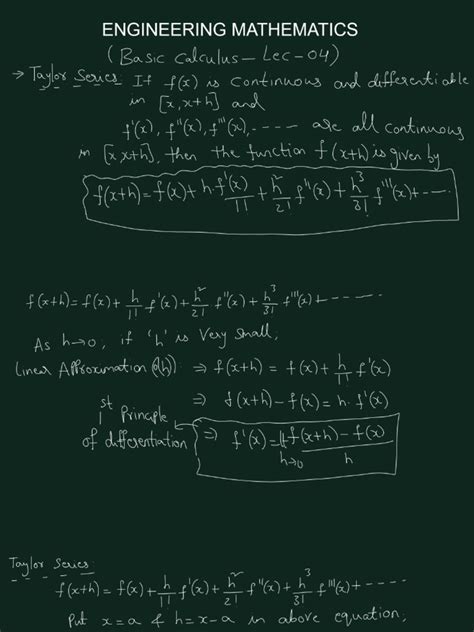 ENGINEERING MATHEMATICS
(Basic Calculus - Lec-04)
→ Taylor Series: If f(x) is continuous and differentiable
in [x,x+h] and
f'(x), f''(x), f'''(x), ---- are all continuous
in [x,x+h], then the function f(x+h) is given by
f(x+h)=f(x)+h.f'(x)/1!+h²/2! f''(x)+h³/3! f'''(x)+----
f(x+h)=f(x)+h/1! f'(x)+h²/2! f''(x)+h³/3! f'''(x)+-----
As h→0, if 'h' is very small,
Linear Approximation (h): ⇒ f(x+h) = f(x)+h/1! f'(x)
⇒ f(x+h)-f(x)=h.f'(x)
1st Principle of differentiation ← ⇒ f'(x)=Lt h→0 f(x+h)-f(x)/h
Taylor Series:
f(x+h)=f(x)+h/1! f'(x)+h²/2! f''(x)+h³/3! f'''(x)+----
Put x=a & h=x-a in above equation,